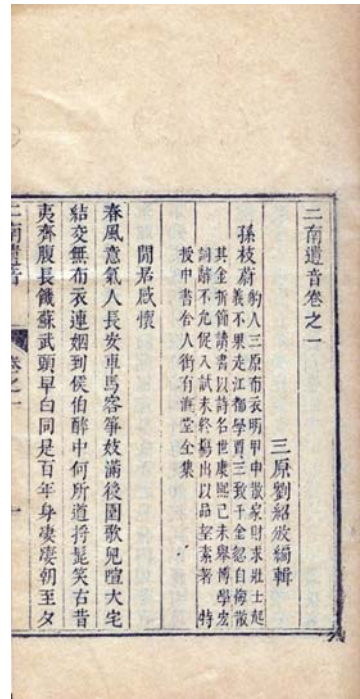 二南遺音卷之一
三原劉紹攽編輯
孫枝蔚
豹人三原布衣明甲申散家財求壯士起
義不果走江都學賈三致千金忽自悔散
其金折節讀書以詩名世康熙己未舉博學宏
詞辭不允促入試未終幅出以品望素著 特
授中書舍人銜有溉堂全集
閒居感懷
春風意氣人長安車馬客箏妓滿後園歌兒喧大宅
結交無布衣連姻到侯伯醉中何所道捋髭笑古昔
夷齊腹長饑蘇武頭早白同是百年身凄凄朝至夕
二南遺音
卷之一
一